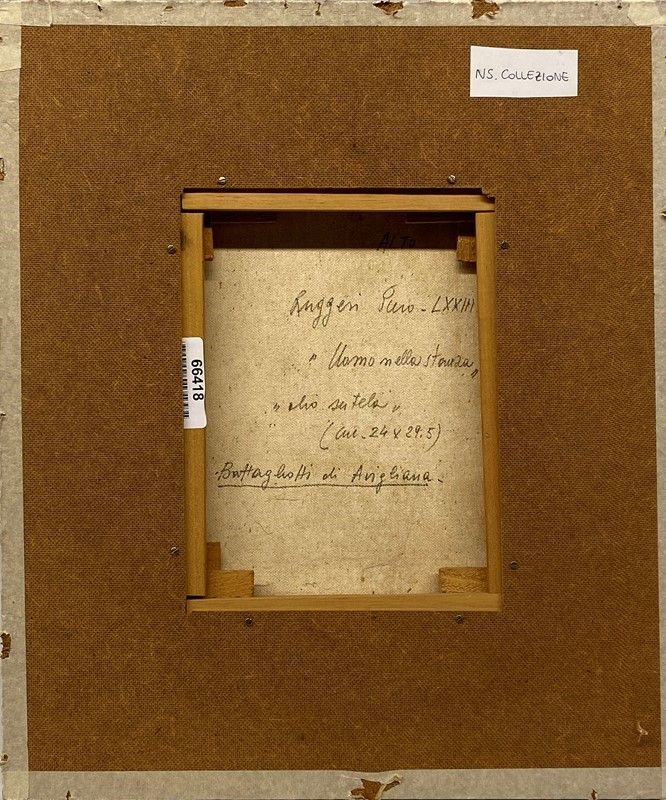 NS. COLLEZIONE
ALTO
Ruggeri Piero - LXXIII
" Uomo nella stanza "
" olio su tela "
(cm. 24 x 29.5)
Battagliotti di Avigliana -
66418